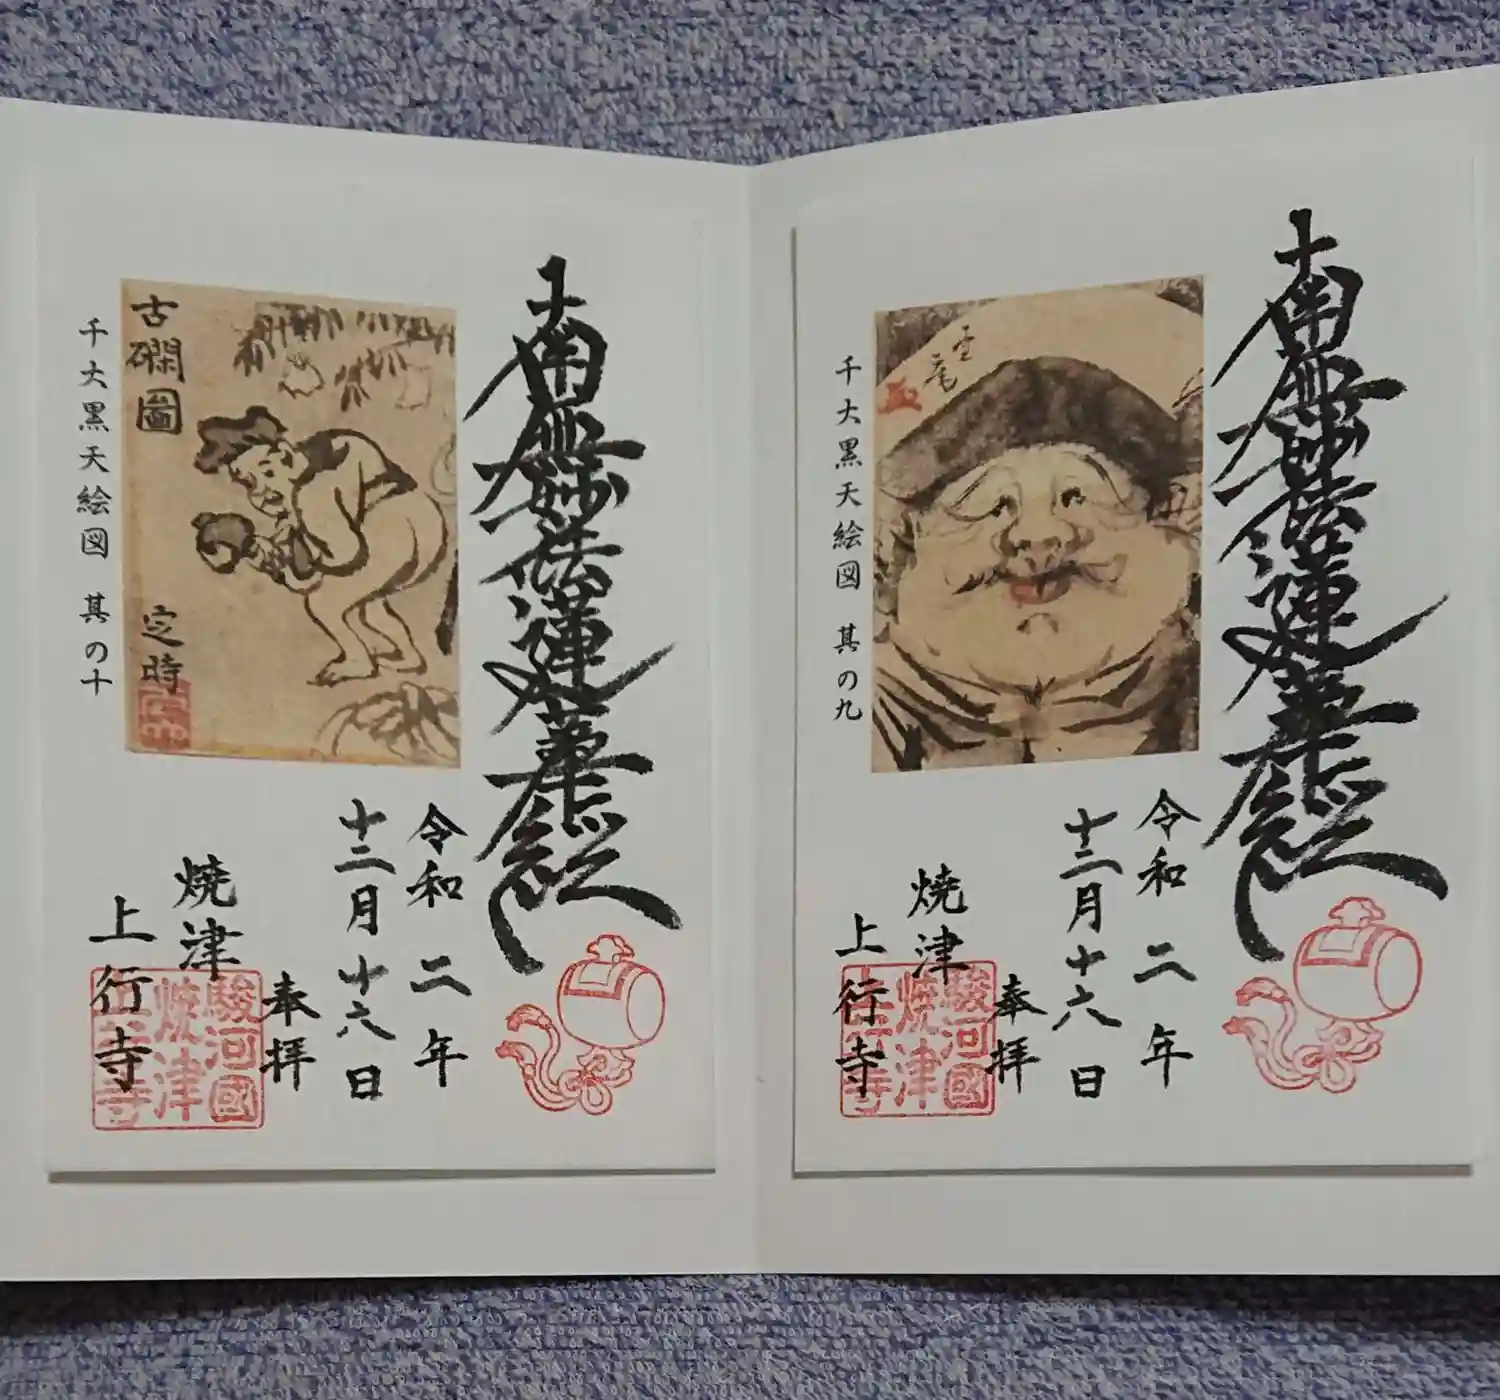 南無妙法蓮華経
千大黒天絵図 其の九
令和二年
十二月十六日
奉拝
焼津
上行寺
駿河國
焼津
上行寺
南無妙法蓮華経
古磵圖
定時
千大黒天絵図 其の十
令和二年
十二月十六日
奉拝
焼津
上行寺
駿河國
焼津
上行寺